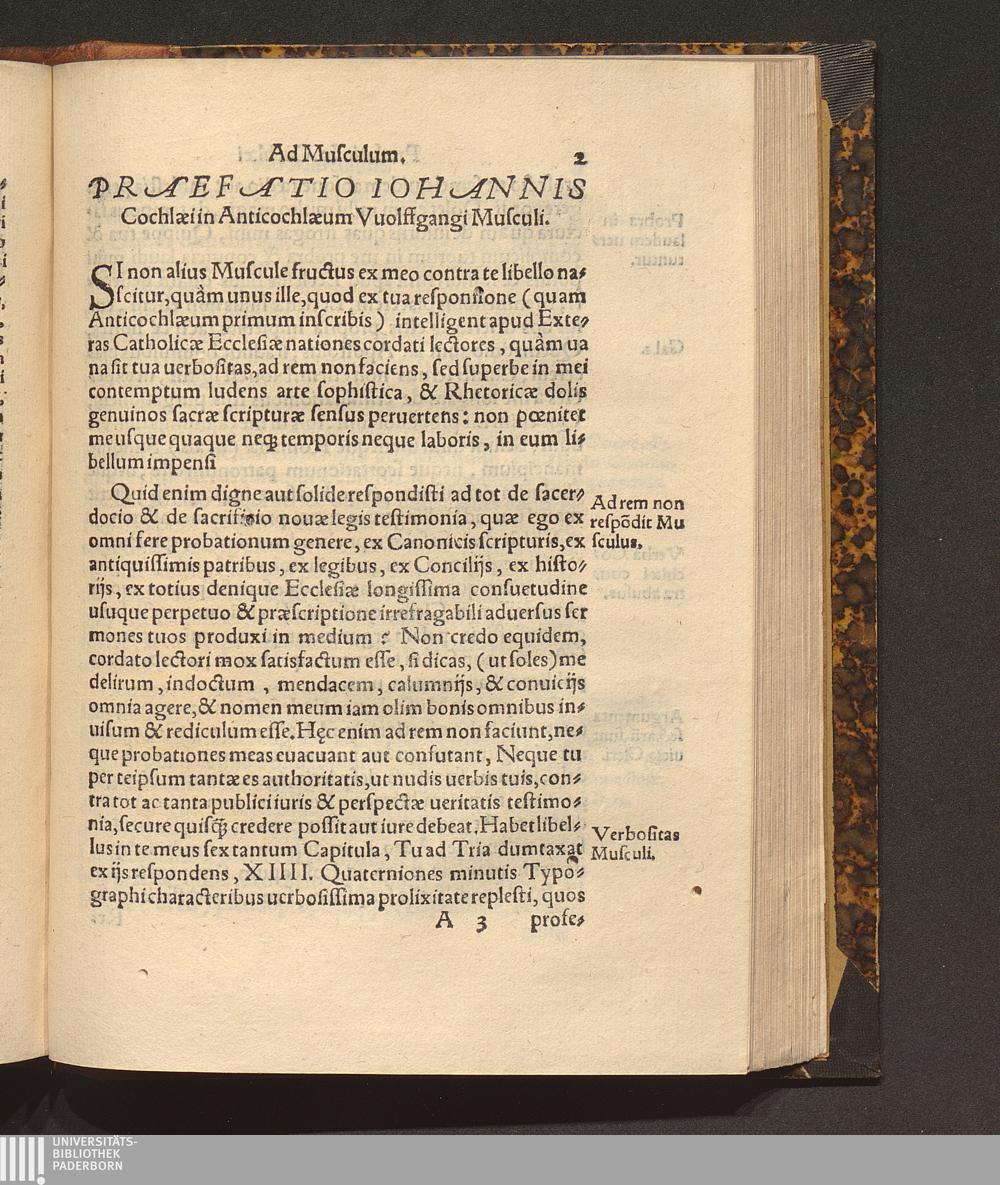 Ad Muſculum.
2
PRAEFATIO IOHANNIS
Cochlæi in Anticochlæum Vuolffgangi Muſculi.
SI non alius Muſcule fructus ex meo contra te libello na⸗
ſcitur, quàm unus ille, quod ex tua reſponſione (quam
Anticochlæum primum inſcribis) intelligent apud Exte⸗
ras Catholicæ Eccleſiæ nationes cordati lectores, quàm ua
na ſit tua uerboſitas, ad rem non faciens, ſed ſuperbe in mei
contemptum ludens arte ſophiſtica, & Rhetoricæ dolis
genuinos ſacræ ſcripturæ ſenſus peruertens: non pœnitet
me uſque quaque neqꝫ temporis neque laboris, in eum li⸗
bellum impenſi
Quid enim digne aut ſolide reſpondiſti ad tot de ſacer⸗
docio & de ſacrificio nouæ legis teſtimonia, quæ ego ex
omni fere probationum genere, ex Canonicis ſcripturis, ex
antiquiſſimis patribus, ex legibus, ex Concilijs, ex hiſto⸗
rijs, ex totius denique Eccleſiæ longiſſima conſuetudine
uſuque perpetuo & præſcriptione irrefragabili aduerſus ſer
mones tuos produxi in medium? Non credo equidem,
cordato lectori mox ſatisfactum eſſe, ſi dicas, (ut ſoles) me
delirum, indoctum, mendacem, calumnijs, & conuicijs
omnia agere, & nomen meum iam olim bonis omnibus in⸗
uiſum & rediculum eſſe. Hęc enim ad rem non faciunt, ne⸗
que probationes meas euacuant aut confutant, Neque tu
per teipſum tantæ es authoritatis, ut nudis uerbis tuis, con⸗
tra tot ac tanta publici iuris & perſpectæ ueritatis teſtimo⸗
nia, ſecure quiſqꝫ credere poſſit aut iure debeat. Habet libel⸗
lus in te meus ſex tantum Capitula, Tu ad Tria dumtaxat
ex ijs reſpondens, XIIII. Quaterniones minutis Typo⸗
graphi characteribus uerboſiſſima prolixitate repleſti, quos
A 3
profe⸗
Ad rem non
reſpõdit Mu
ſculus.
Verboſitas
Muſculi.
UNIVERSITÄTS-
BIBLIOTHEK
PADERBORN